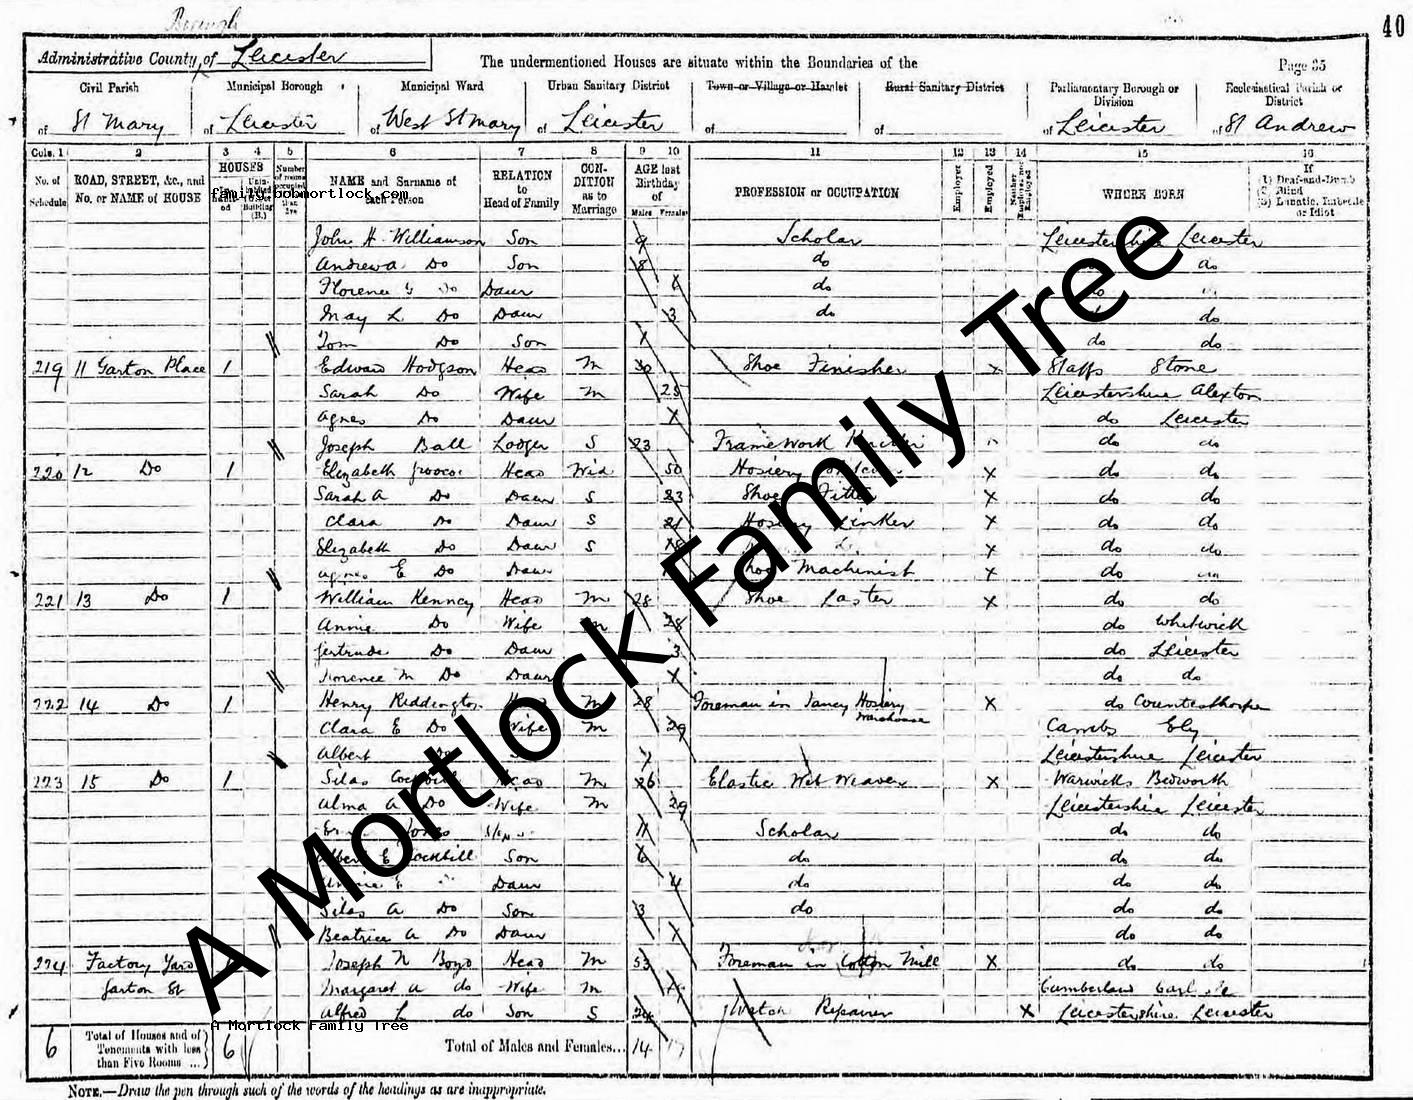 Borough
40
Administrative County of Leicester
The undermentioned Houses are situate within the Boundaries of the
Page 35
Civil Parish
Municipal Borough
Municipal Ward
Urban Sanitary District
Town or Village or Hamlet
Rural Sanitary District
Parliamentary Borough or Division
Ecclesiastical Parish or District
of St Mary
of Leicester
of West St Mary
of Leicester
of
of
of Leicester
of St Andrew
Cols. 1 2 3 4 5 6 7 8 9 10 11 12 13 14 15 16
No. of Schedule
ROAD, STREET, &c., and No. or NAME of HOUSE
HOUSES
NAME and Surname of each Person
RELATION to Head of Family
CONDITION as to Marriage
AGE last Birthday of
Males Females
PROFESSION or OCCUPATION
Employer
Employed
WHERE BORN
If
(1) Deaf-and-Dumb
(2) Blind
(3) Lunatic, Imbecile or Idiot
family.bobmortlock.com
John H Williamson Son 9 Scholar Leicestershire Leicester
Andrew A Do Son 8 do do
Florence G Do Daur do
May L Do Daur 3 do do
Tom Do Son do do
219 11 Garton Place 1 Edward Hodgson Head M 30 Shoe Finisher x Staffs Stone
Sarah Do Wife M 25 Leicestershire Alexton
Agnes Do Daur do Leicester
Joseph Ball Lodger S 23 Framework do do
220 12 Do 1 Elizabeth Head Wid 50 Hosiery x do do
Sarah A Do Daur S 23 Shoe x do do
Clara Do Daur S 21 Hosiery Linker x do do
Elizabeth Do Daur S 18 x do do
Agnes E Do Daur Shoe Machinist x do do
221 13 Do 1 William Kenney Head M 28 Shoe Laster x do do
Annie Do Wife M 28 do Whitwick
Gertrude Do Daur 3 do Leicester
Florence M Do Daur do do
222 14 Do 1 Henry Riddington Head M 28 Foreman in Fancy Hosiery Warehouse x do Countesthorpe
Clara E Do Wife M 29 Cambs Ely
Albert Do Leicestershire Leicester
223 15 Do 1 Silas Head M 26 Elastic Web Weaver x Warwicks Bedworth
Alma A Do Wife M 29 Leicestershire Leicester
Jones 11 Scholar do do
Albert E Cockbill Son 6 do do do
Daur 4 do do do
Silas A Do Son 3 do do do
Beatrice A Do Daur do do
224 Factory Yard Joseph N Boyd Head M 53 Foreman in Cotton Mill x do do
Garton St Margaret A do Wife M Cumberland Carlisle
Alfred L do Son S 24 Watch Repairer x Leicestershire Leicester
A Mortlock Family Tree
A Mortlock Family Tree
6 Total of Houses and of Tenements with less than Five Rooms ... 6 Total of Males and Females... 14 17
NOTE.—Draw the pen through such of the words of the headings as are inappropriate.